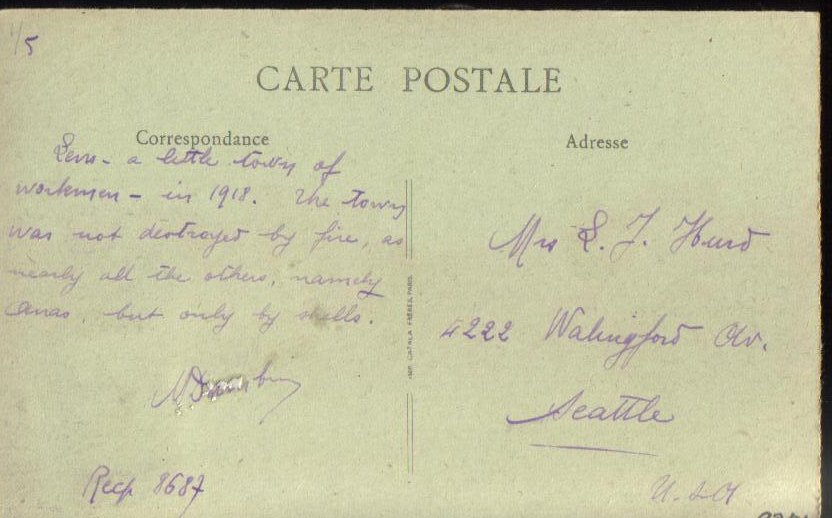 1/5
CARTE POSTALE
Correspondance
Lens - a little town of
workmen - in 1918. The town
was not destroyed by fire, as
nearly all the others, namely
Arras, but only by shells.
Recp 8687
IMP. CATALA FRÈRES, PARIS
Adresse
Mrs L. J. Hurd
4222 Walingford Av.
Seattle
U.S.A